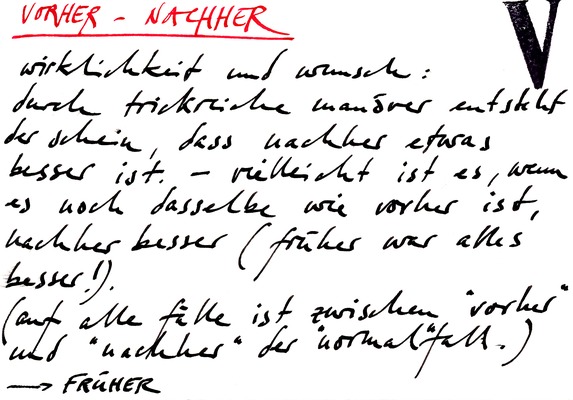 VORHER - NACHHER
V
wirklichkeit und wunsch:
durch trickreiche manöver entsteht
der schein, dass nachher etwas
besser ist. – vielleicht ist es, wenn
es noch dasselbe wie vorher ist,
nachher besser (früher war alles
besser!).
(auf alle fälle ist zwischen "vorher"
und "nachher" der "normal"fall.)
→ FRÜHER